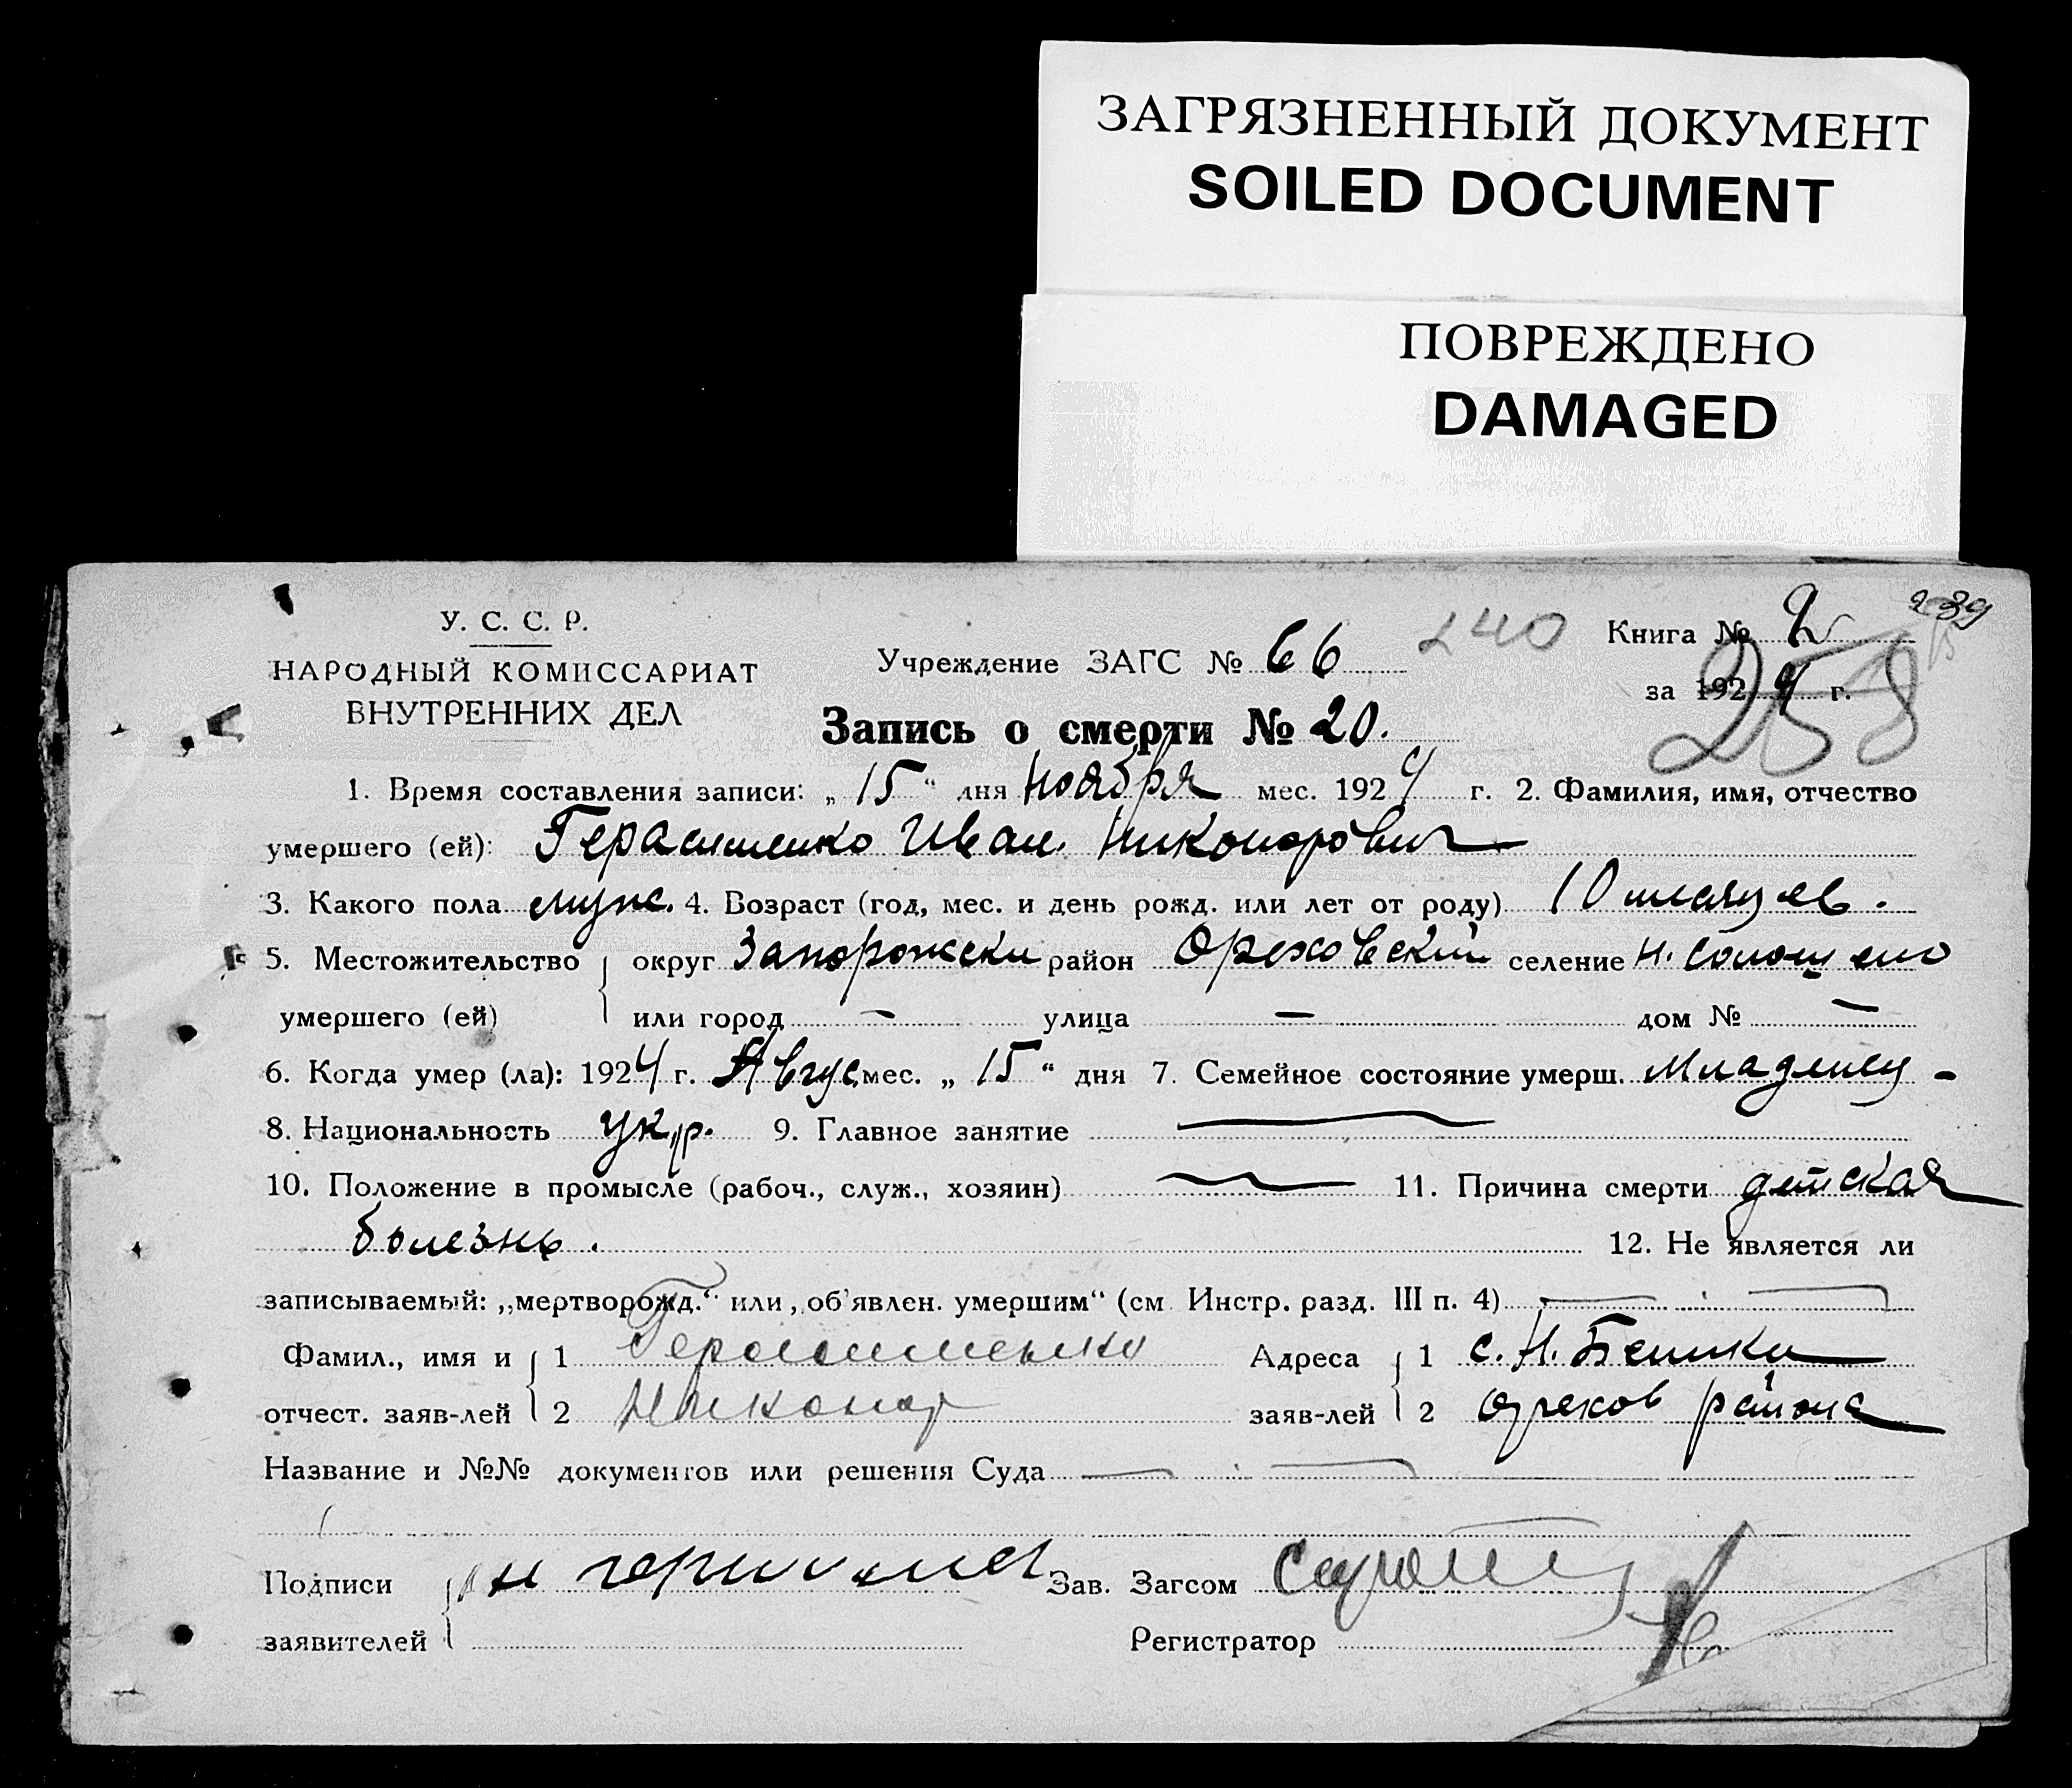 ЗАГРЯЗНЕННЫЙ ДОКУМЕНТ
SOILED DOCUMENT
ПОВРЕЖДЕНО
DAMAGED
239
У. С. С. Р.
НАРОДНЫЙ КОМИССАРИАТ
ВНУТРЕННИХ ДЕЛ
Учреждение ЗАГС № 66
240
Книга № 2
за 1924 г.
258
Запись о смерти № 20.
1. Время составления записи: „15“ дня Ноября мес. 1924 г. 2. Фамилия, имя, отчество
умершего (ей): Герасименко Иван Никонорович
3. Какого пола мужс. 4. Возраст (год, мес. и день рожд. или лет от роду) 10 месяцев.
5. Местожительство округ Запорожски район Ореховский селение Н.
умершего (ей) или город — улица — дом № —
6. Когда умер (ла): 1924 г. Авгус. мес. „15“ дня 7. Семейное состояние умерш. Младенец -
8. Национальность укр. 9. Главное занятие —
10. Положение в промысле (рабоч., служ., хозяин) — 11. Причина смерти детская
болезнь. 12. Не является ли
записываемый: „мертворожд.“ или „об'явлен. умершим“ (см. Инстр. разд. III п. 4) —
Фамил., имя и 1 Герасименко Адреса 1 с. Н.
отчест. заяв-лей 2 Никонор заяв-лей 2 Орехов района
Название и №№ документов или решения Суда —
Подписи Н Зав. Загсом
заявителей Регистратор